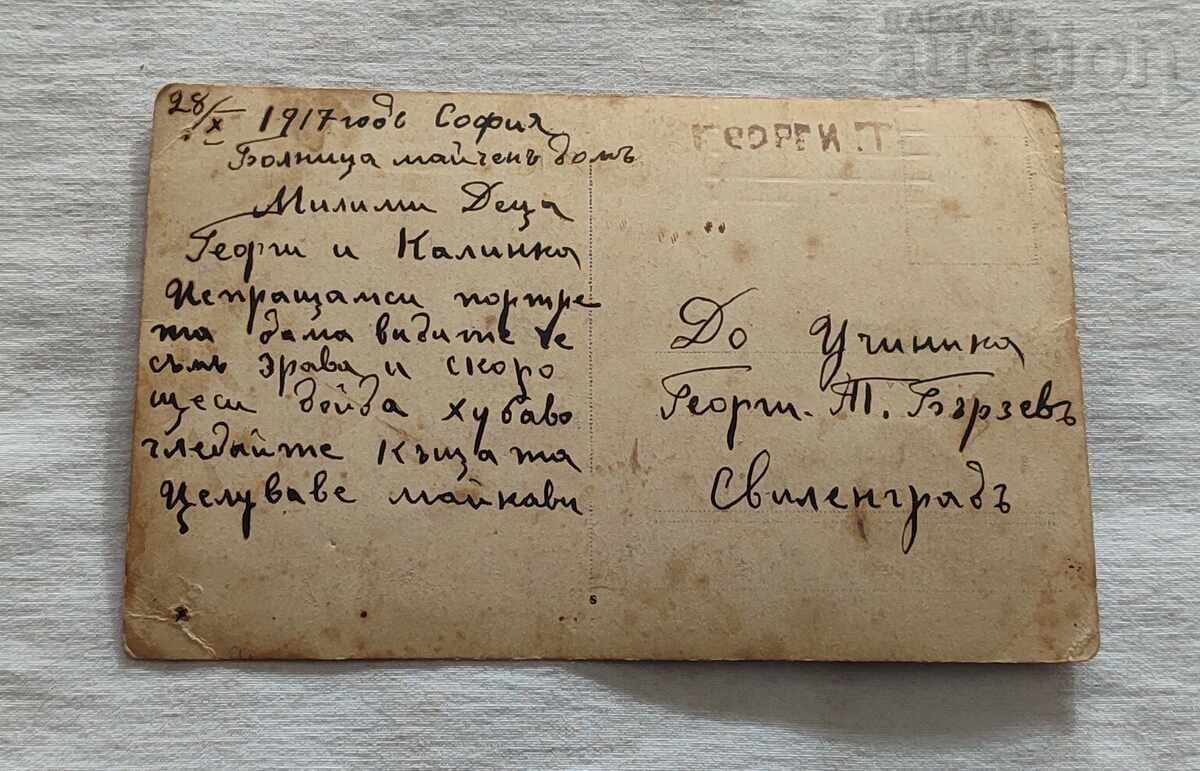 28/X 1917 годъ София
Болница майченъ домъ
Милими Деца
Георги и Калинка
Испращамси портре
та дама видите че
съмъ Зрава и скоро
щеси дойда хубаво
гледайте Къщата
Целуваве майкави
ГЕОРГИ Т
До Учиника
Георги. Т. Бързевъ
Свиленградъ
BALKAN
auction